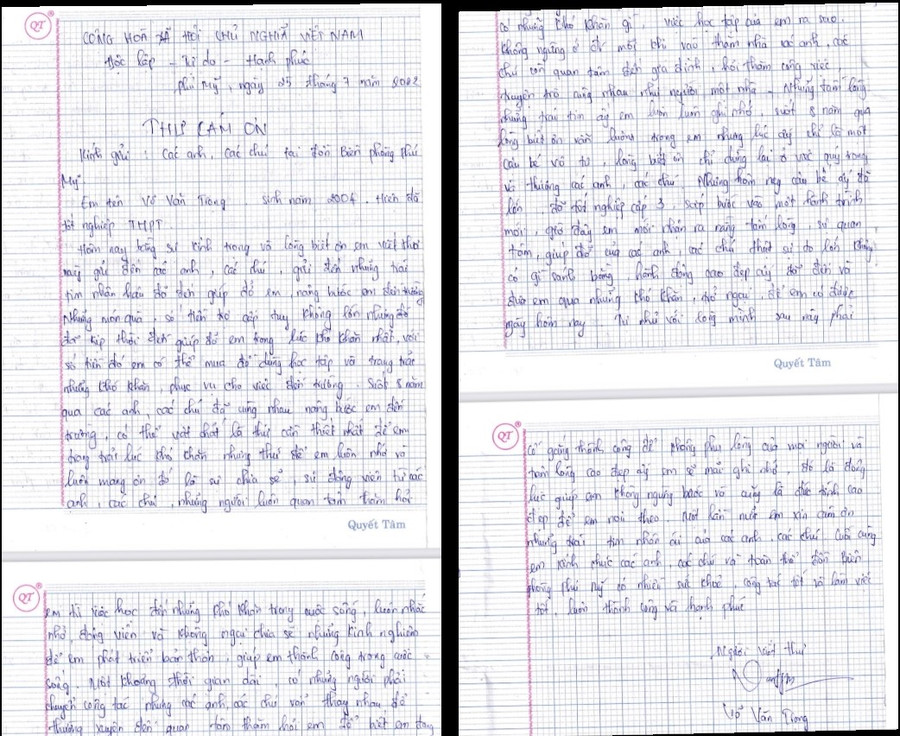 QT
CỘNG HOÀ XÃ HỘI CHỦ NGHĨA VIỆT NAM
Độc lập - Tự do - Hạnh phúc
Phú Mỹ, ngày 25 tháng 7 năm 2022
THƯ CẢM ƠN
Kính gửi : Các anh, các chú tại đồn Biên phòng Phú
Mỹ.
Em tên Võ Văn Trong sinh năm 2004. Hiện đã
tốt nghiệp THPT.
Hôm nay bằng sự kính trọng và lòng biết ơn em viết thư
này gửi đến các anh, các chú, gửi đến những trái
tim nhân hậu đã đến giúp đỡ em, nâng bước em đến trường
Những món quà, số tiền trợ cấp tuy không lớn nhưng đã
đã kịp thời đến giúp đỡ em trong lúc khó khăn nhất, với
số tiền đó em có thể mua đồ dùng học tập và trang trải
những khó khăn, phục vụ cho việc đến trường. Suốt 8 năm
qua các anh, các chú đã cùng nhau nâng bước em đến
trường, có thể vật chất là thứ cần thiết nhất để em
trang trải lúc khó khăn nhưng thứ để em luôn nhớ và
luôn mang ơn đó là sự chia sẻ, sự động viên từ các
anh, các chú, những người luôn quan tâm thăm hỏi
Quyết Tâm
QT
em từ việc học đến những khó khăn trong cuộc sống, luôn nhắc
nhở, động viên và không ngại chia sẻ những kinh nghiệm
để em phát triển bản thân, giúp em thành công trong cuộc
sống. Một khoảng thời gian dài, có những người phải
chuyển công tác nhưng các anh, các chú vẫn thay nhau để
thường xuyên đến quan tâm thăm hỏi em để biết em đang
có những khó khăn gì, việc học tập của em ra sao.
Không ngừng ở đó mỗi khi vào thăm nhà các anh, các
chú còn quan tâm đến gia đình, hỏi thăm công việc
truyện trò cùng nhau như người một nhà. Những tấm lòng
những trái tim ấy em luôn luôn ghi nhớ suốt 8 năm qua
lòng biết ơn vẫn luôn trong em nhưng lúc ấy chỉ là một
cậu bé vô tư, lòng biết ơn chỉ dừng lại ở việc quý trọng
và thương các anh, các chú. Nhưng hôm nay cậu bé ấy đã
lớn, đã tốt nghiệp cấp 3, sắp bước vào một hành trình
mới, giờ đây em mới nhận ra rằng tấm lòng, sự quan
tâm, giúp đỡ của các anh, các chú thật sự to lớn không
có gì sánh bằng, hành động cao đẹp ấy đã đến và
đưa em qua những khó khăn, trở ngại, để em có được
ngày hôm nay. Tự nhủ với lòng mình sau này phải
Quyết Tâm
QT
Cố gắng thành công để không phụ lòng của mọi người và
tấm lòng cao đẹp ấy em sẽ mãi ghi nhớ, đó là động
lực giúp em không ngừng bước và cũng là đức tính cao
đẹp để em noi theo. Một lần nữa em xin cảm ơn
những trái tim nhân ái của các anh, các chú. Cuối cùng
em kính chúc các anh, các chú và toàn thể đồn Biên
phòng Phú Mỹ có nhiều sức khoẻ, công tác tốt và làm việc
tốt, luôn thành công và hạnh phúc
Người viết thư
Võ Văn Trong